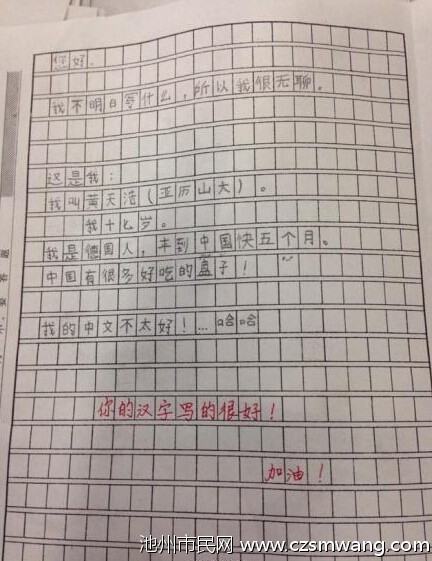 你好.
我不明白写什么，所以我很无聊。
这是我：
我叫黄天浩（亚历山大）。
我十七岁。
我是德国人，来到中国快五个月。
中国有很多好吃的盒子！
我的中文不太好！…哈哈
你的汉字写的很好！
加油！
池州市民网 www.czsmwang.com